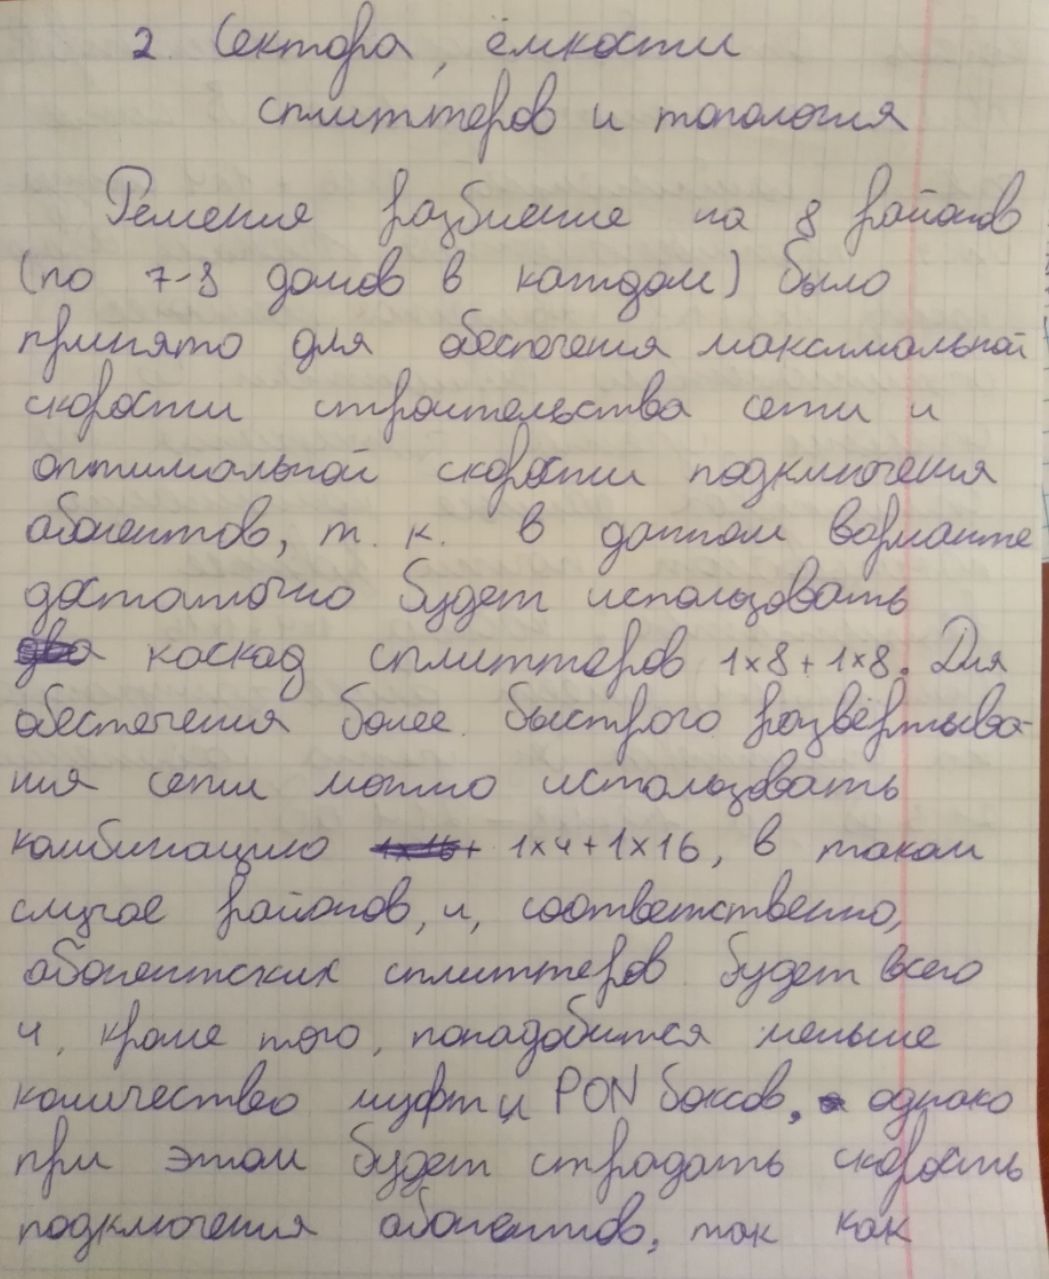 2. Сектора, ёмкости
сплиттеров и топология
Решения разбиение на 8 районов
(по 7-8 домов в каждом) было
принято для обеспечения максимальной
скорости строительства сети и
оптимальной скорости подключения
абонентов, т. к. в данном варианте
достаточно будет использовать
два каскад сплиттеров 1x8 + 1x8. Для
обеспечения более быстрого развёртыва-
ния сети можно использовать
комбинацию 1x16+ 1x4+1x16, в таком
случае районов, и, соответственно,
абонентских сплиттеров будет всего
4, кроме того, понадобится меньше
количество муфт и PON боксов, однако
при этом будет страдать скорость
подключения абонентов, так как